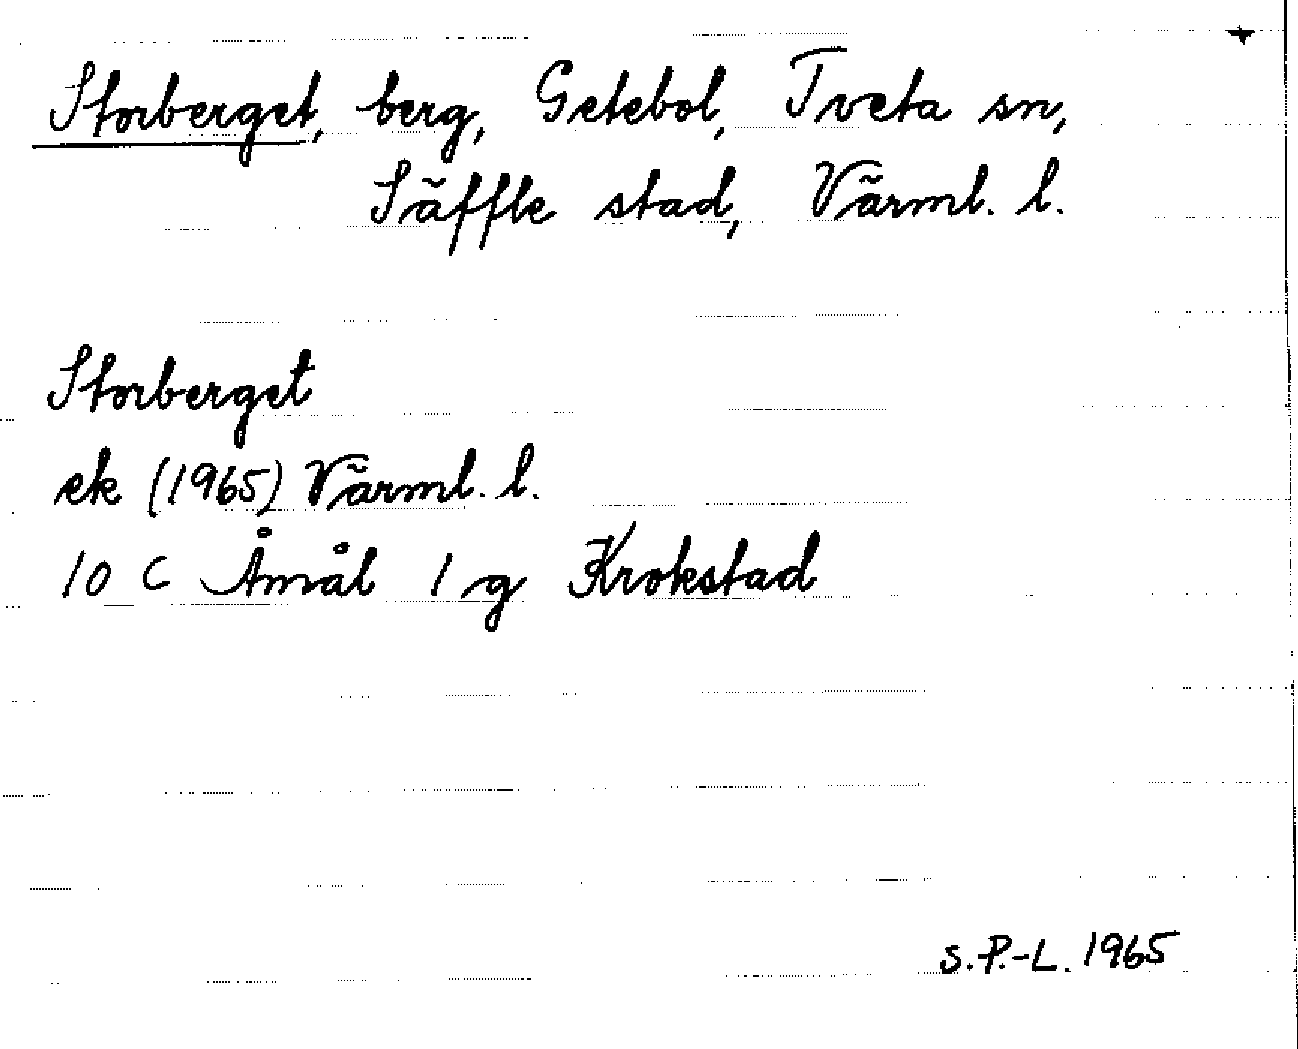 Storberget, berg, Getebol, Tveta sn,
Säffle stad, Värml. l.
Storberget
ek (1965) Värml. l.
10 C Åmål 1 g Krokstad
S.P.-L. 1965